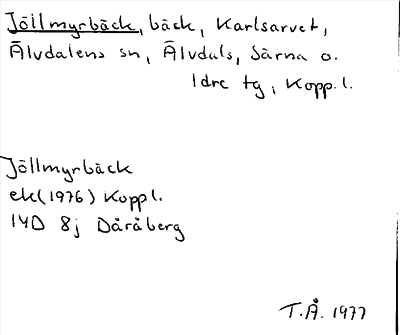 Jöllmyrbäck, bäck, Karlsarvet,
Älvdalens sn, Älvdals, Särna o.
Idre tg, Kopp. l.
Jöllmyrbäck
ek (1976) Koppl.
14D 8j Dåråberg
T.Å. 1977